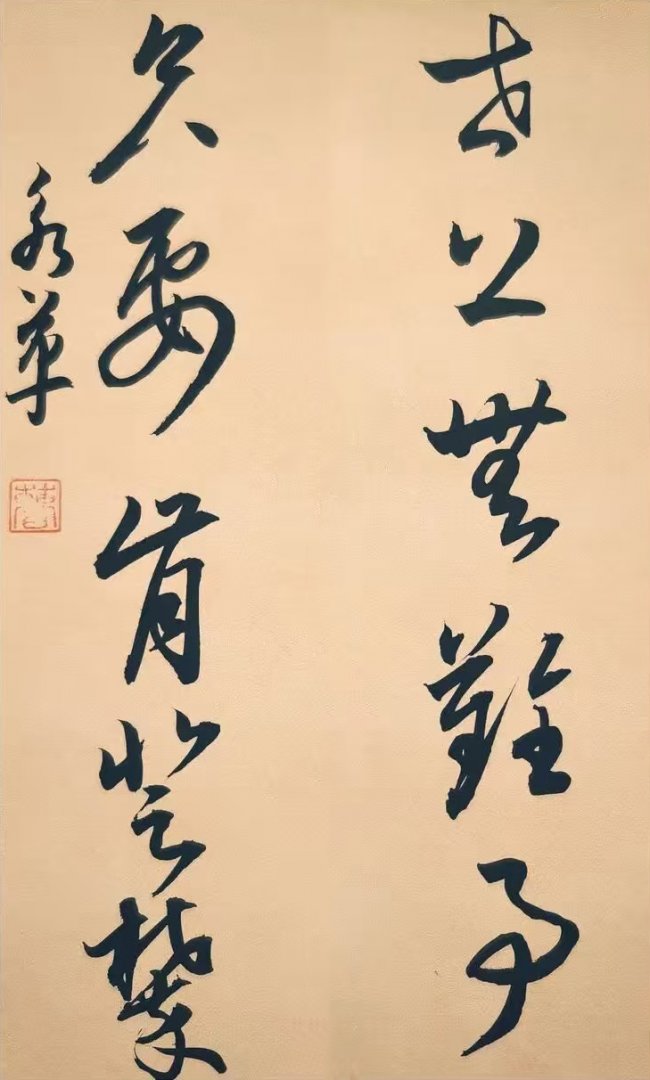 世上無難事
只要肯登攀
永革